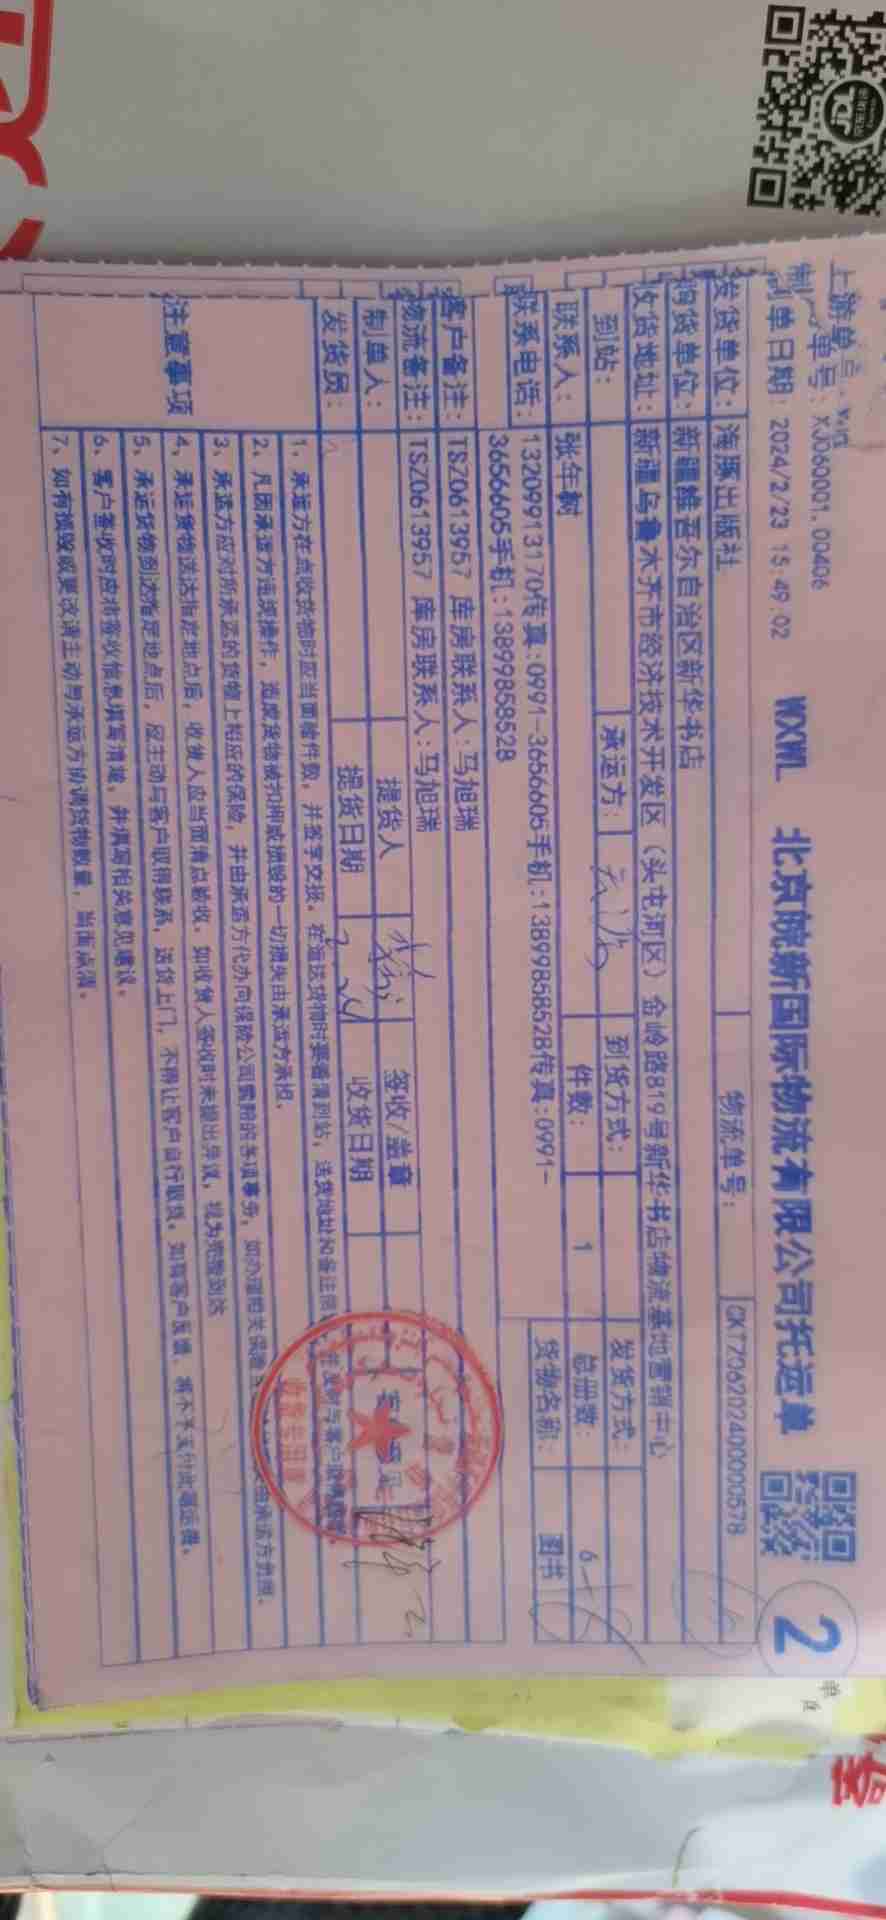 WXWL 北京皖新国际物流有限公司托运单
2
单号：XJ060001.00406
制单日期：2024/2/23 15:49:02
发货单位：海豚出版社 物流单号：CKTZ0620240000578
购货单位：新疆维吾尔自治区新华书店
收货地址：新疆乌鲁木齐市经济技术开发区（头屯河区）金岭路819号新华书店物流基地营销中心
到站： 承运方： 到货方式： 发货方式：
联系人：张年树 件数：1 总册数：6
联系电话：13209913170传真:0991-3656605手机:13899858528传真:0991-
3656605手机:13899858528 货物名称：图书
客户备注：TSZ0613957 库房联系人:马旭瑞
物流备注：TSZ0613957 库房联系人:马旭瑞
制单人： 提货人 签收/盖章
发货员： 提货日期 收货日期
注意事项
1、承运方在点收货物时应当面验件数，并签字交接。在运送货物时要看清到站，送货地址和备注
2、凡因承运方违规操作，造成货物被扣押或损毁的一切损失由承运方承担。
3、承运方应对所承运的货物上相应的保险，并由承运方代办向保险公司索赔的各项事务。
4、承运货物送达指定地点后，收货人应当面清点验收。如收货人签收时未提出异议，视为完整到达
5、承运货物到达指定地点后，应主动与客户取得联系，送货上门，不得让客户自行取货。如有客户反馈，将不予支付此笔运费。
6、客户签收时应将签收信息填写清楚，并填写相关意见建议。
7、如有损毁或更改请主动与承运方协调货物数量，当面点清。
收货专用章
JDL